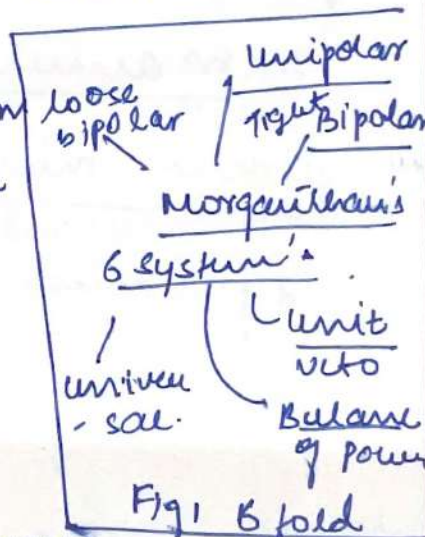 Unipolar
loose
bipolar
Tight Bipolar
Morganthau's
6 System's
Unit
veto
univer
- sal.
Balance
of power
Fig 1 6 fold